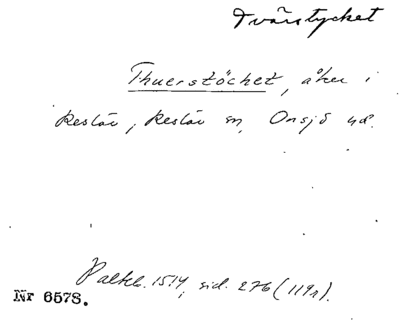 Tvärstycket
Thuerstöcket, åker i
Reslöv, Reslöv sn, Onsjö hd.
Paltebr. 1514, sid. 276 (119r).
Nr 6578.